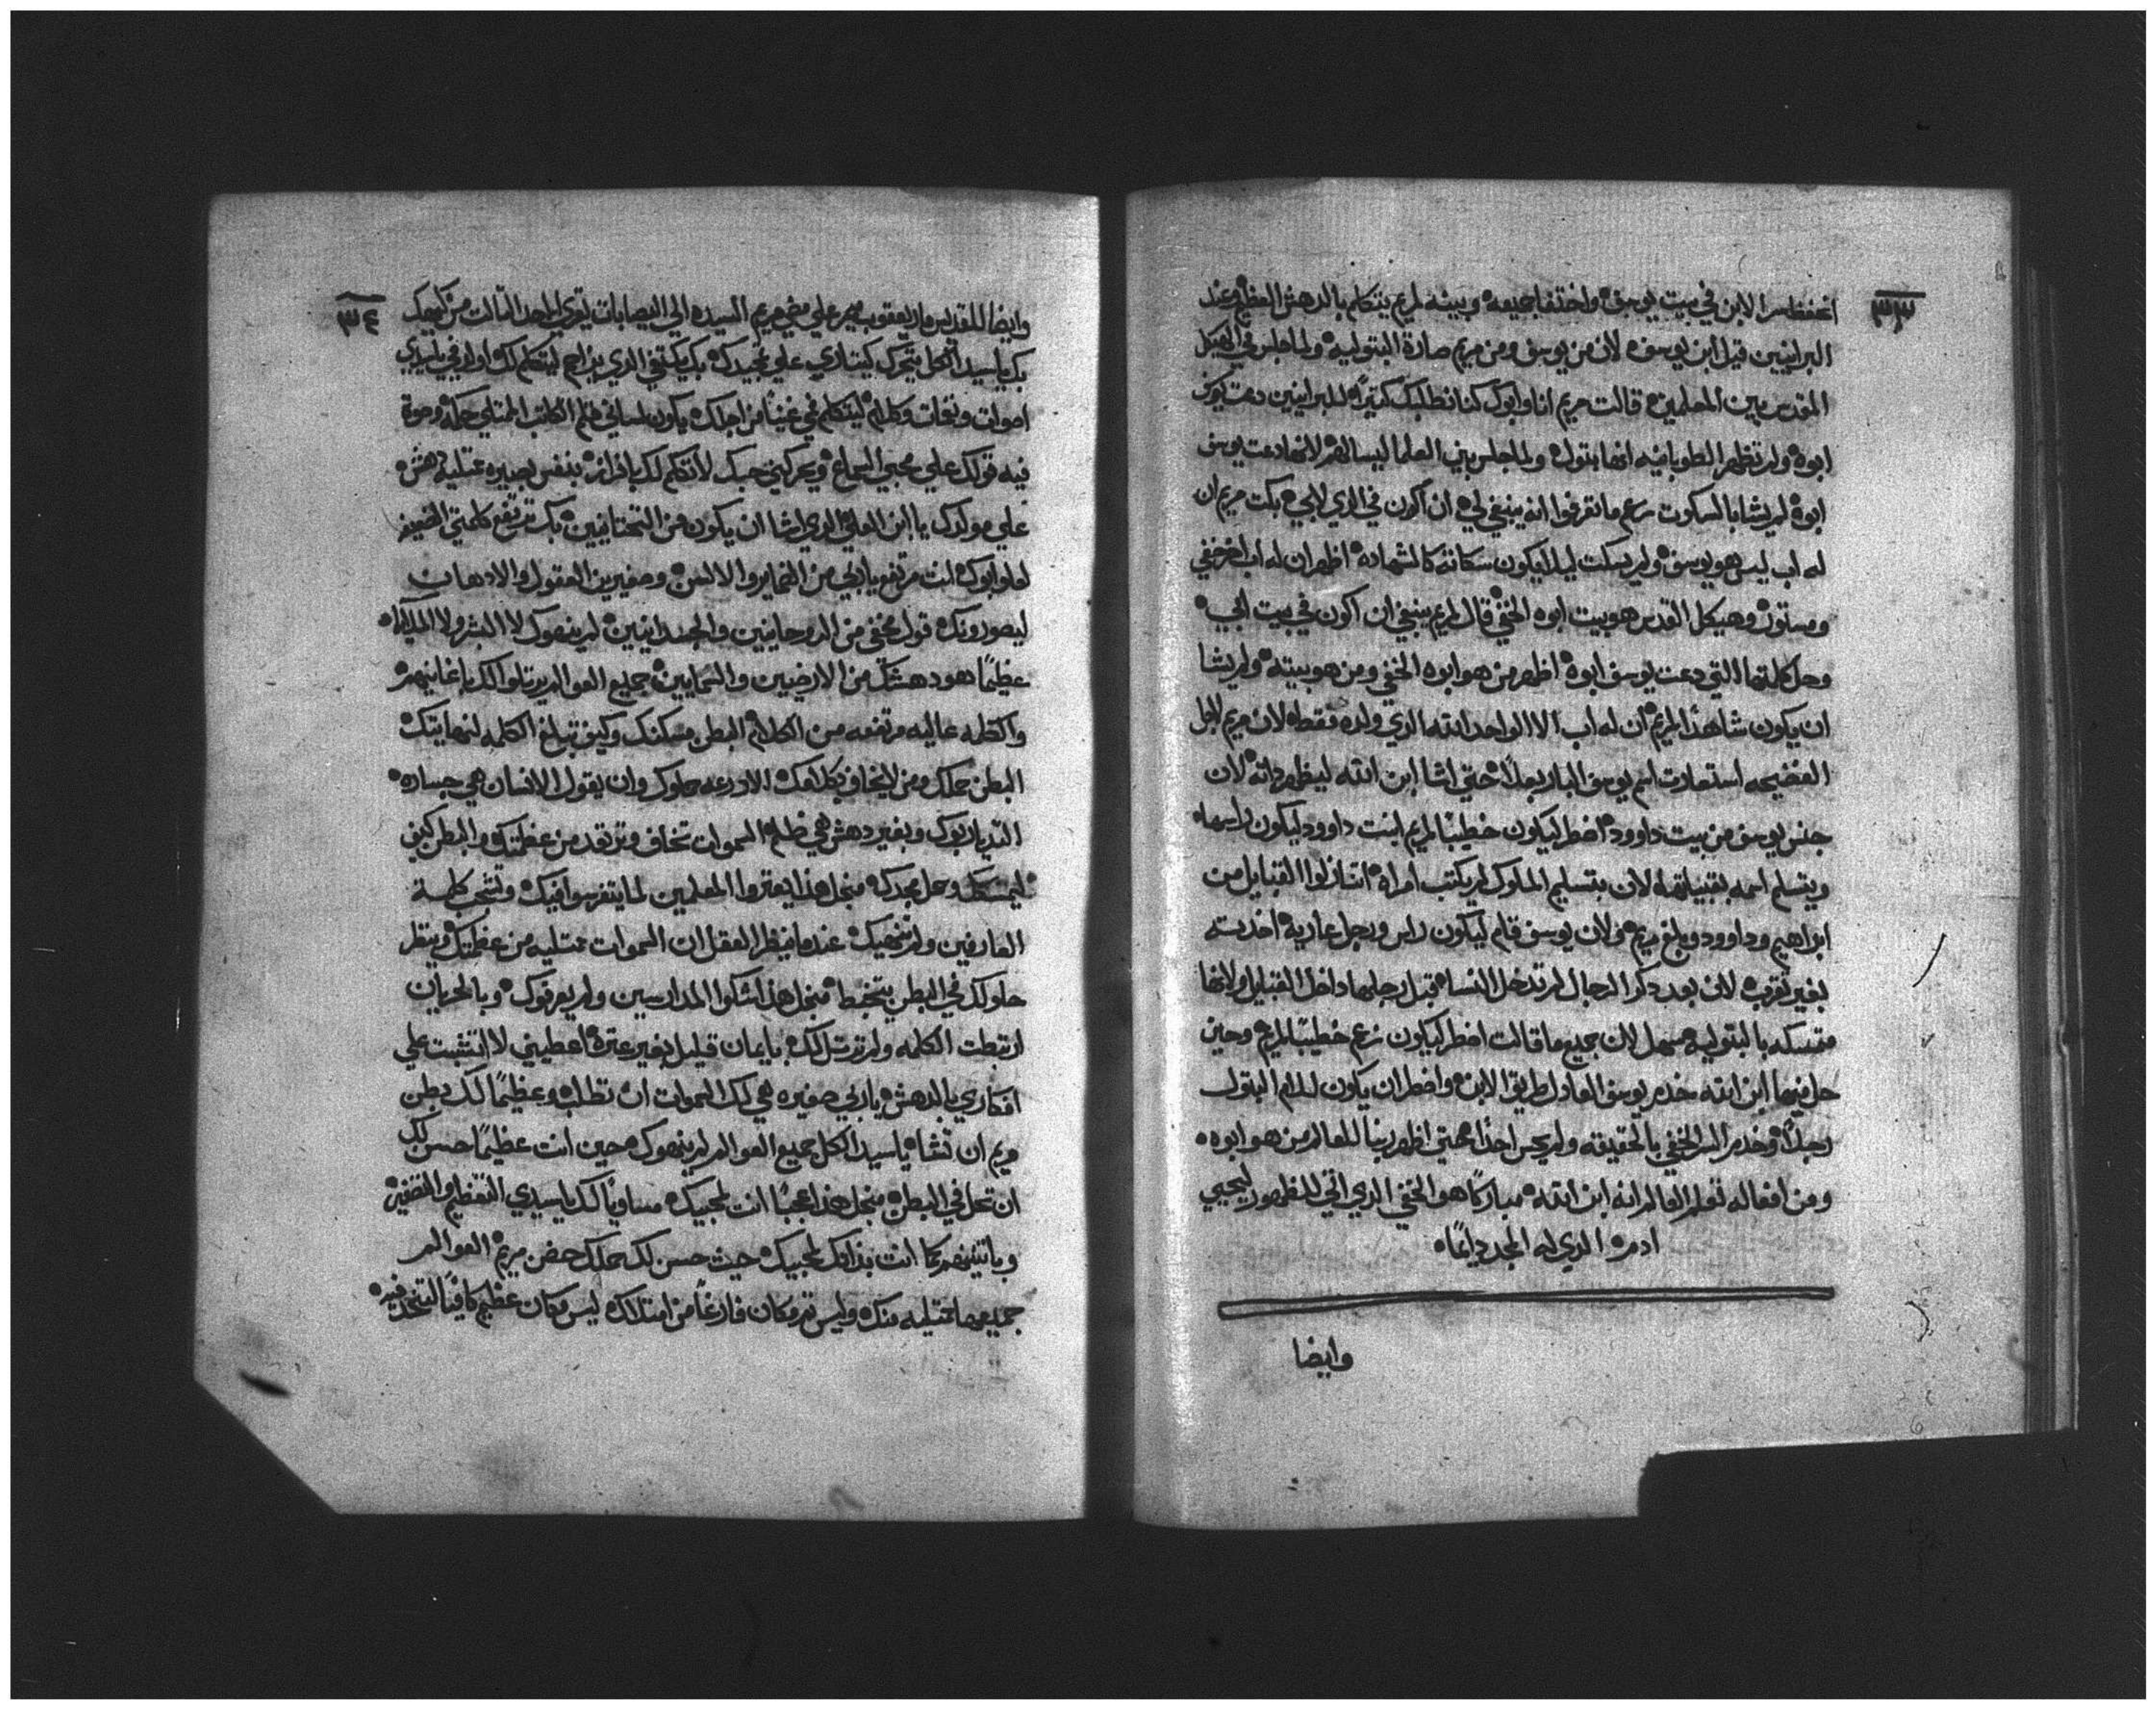 ٣٣
انحفظ سر الابن في بيت يوسف واختفا جميعه وبينه لمريم يتكلم بالدهش العظيم وعند
البرانيين قيل ابن يوسف لان من يوسف ومن مريم صارة البتوليه ولما جلس في الهيكل
المقدس بين المعلمين قالت مريم انا وابوك كنا نطلبك كتيرًا للبرانيين دعت يوسف
ابوه ولم تظهر الطوبانيه انها بتول ولما جلس بين العلما ليسالهم لانها دعت يوسف
ابوه لم يشا بالسكوت زعم ما تعرفوا انه ينبغي لي ان اكون في الدي لابي بكت مريم ان
له اب ليس هو يوسف ولم يسكت ليلا يكون سكاته كالشهاده اظهر ان له اب اخر خفي
ومستور وهيكل القدس هو بيت ابوه الخفي قال لمريم ينبغي ان اكون في بيت ابي
وحل كلمتها التي دعت يوسف ابوه اظهر من هو ابوه الخفي ومن هو بيته ولم يشا
ان يكون شاهدًا لمريم ان له اب الا الواحد الله الدي ولده فقط لان مريم لاجل
الفضيحه استعارت اسم يوسف البار بعلًا حتي اشا ابن الله ليظهر داته لان
جنس يوسف من بيت داوود اضطر ليكون خطيبًا لمريم ابنت داوود ليكون راسها
ويتسلم اسمه بقبيلتها لان بتسليم الملوك لم يكتب امراه اتنازلوا القبايل من
ابراهيم وداوود وبلغ مريم ولان يوسف قام ليكون راس ورجل عاريه اخدته
بغير تقرب لان بعد دكر الرجال لم تدخل النسا قبل رجلها داخل القبايل ولانها
متمسكه بالبتوليه سهل لان جميع ما قالت اضطر ليكون زعم خطيبًا لمريم وحين
حل فيها ابن الله خدم يوسف العادل طريق الابن واضطر ان يكون لدام البتول
رجلًا وخدم السر الخفي بالحقيقه ولم يحس احدًا حتي اظهر ربنا للعالم من هو ابوه
ومن افعاله تعلم العالم انه ابن الله مباركًا هو الخفي الدي اتي للظهور ليحيي
ادم الدي له المجد دايمًا
وايضا
٣٤
وايضا للقديس مار يعقوب ميمر علي مضي مريم السيده الي اليصابات يقري الاحد التالت من كيهك
بك يا سيد الكل يتحرك كيتاري علي تمجيدك بك يكتفي الدي يزاحم ليتكلم لك اوفر في يا سيدي
اصوات ونغمات وكلام ليتكلم في غنيًا من اجلك يكون لساني قلم الكاتب الممتلي حكمة وصوت
فيه قولك علي محبي السماع ويحركني حبك لاتكلم لك بافراز بنفس بصيره ممتليه دهش
علي مولدك يا ابن العلي الدي اشا ان يكون من التحتانيين بك ترتفع كلمتي الضعيفه
لعلو ابوك انت مرتفع يا ربي من الضماير والالسن وصغيرين العقول والادهان
ليصورونك قول مخفي من الروحانيين والجسدانيين لم ينعوك لا البشر ولا الملايكه
عظيمًا هو دهشتك من الارضيين والسمايين جميع العوالم يرتلوا لك باغانيهم
واكتله عاليه مرتفعه من الكلام البطن مسكنك وكيف تبلغ الكلمه لنهايتك
البطن حملك ومن لا يخاف بكلامك الادرعه حملوك وان يقول الانسان هي جساره
التديان ربوك وبغير دهش هي ظلم السموات تخاف وترتعد من عظمتك والبطن كيف
ليمسكك وحل مجدك منجل هذا يعتروا المعلمين لما يتفرسوا فيك وتشجب كلمة
العارفين ولم تنهيك عندما ينظر العقل ان السموات ممتليه من عظمتك وينظر
حلولك في البطن يتخبط منجل هذا شكوا المدارسين ولم يعرفوك وبالحريان
ارتبطت الكلمه ولم ترتل لك بايمان قليل بغير عترة اعطيني لا اتشبت علي
افكاري بالدهش يا ربي صغيره هي لك السموات ان تطلب وعظيمًا لك بطن
مريم ان تشا يا سيد الكل جميع العوالم لم ينعوك حين انت عظيمًا حسن لك
ان تحل في البطن منجل هذا عجبًا انت لمحبيك مساويًا لك يا سيدي التعظيم والتصغير
وباتنينهم كما انت بذاتك لمحبيك حيث حسن لك حملك حضن مريم العوالم
جميعها ممتليه منك وليس تم مكان فارغًا من امتلاك ليس مكان عظيم كافيًا لتتحد فيه